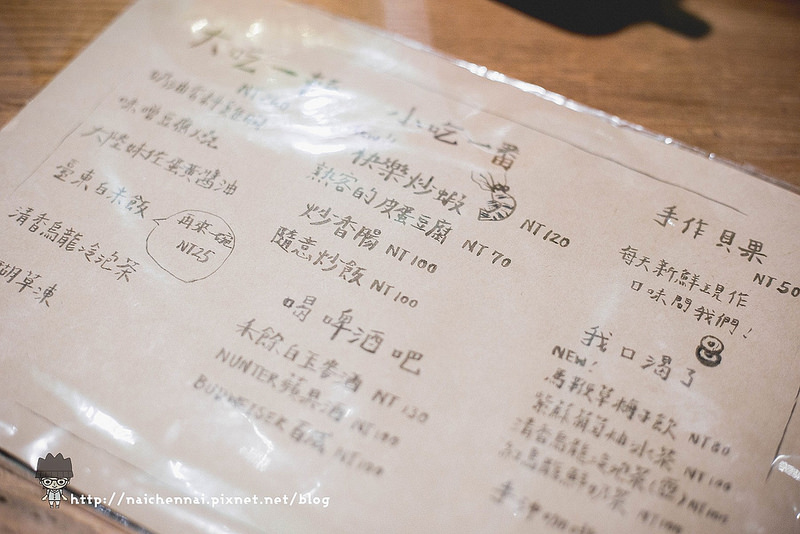 大吃一頓
味噌豆腐湯
大陸妹拌蛋黃醬油
臺東白米飯
再來一碗
NT25
清香烏龍冷泡茶
小吃一番
快樂炒蝦 NT120
熟客的皮蛋豆腐 NT 70
炒香腸 NT 100
隨意炒飯 NT 100
喝啤酒吧
禾餘白玉麥酒 NT 130
NUNTER蘋果酒
BUDWEISER百威
手作貝果
NT 50
每天新鮮現作
口味問我們!
我口渴了
NEW!
馬鞭草梅子飲 NT 80
紫蘇葡萄柚冰茶
清香烏龍冷泡茶(壺)
http://naichennai.pixnet.net/blog